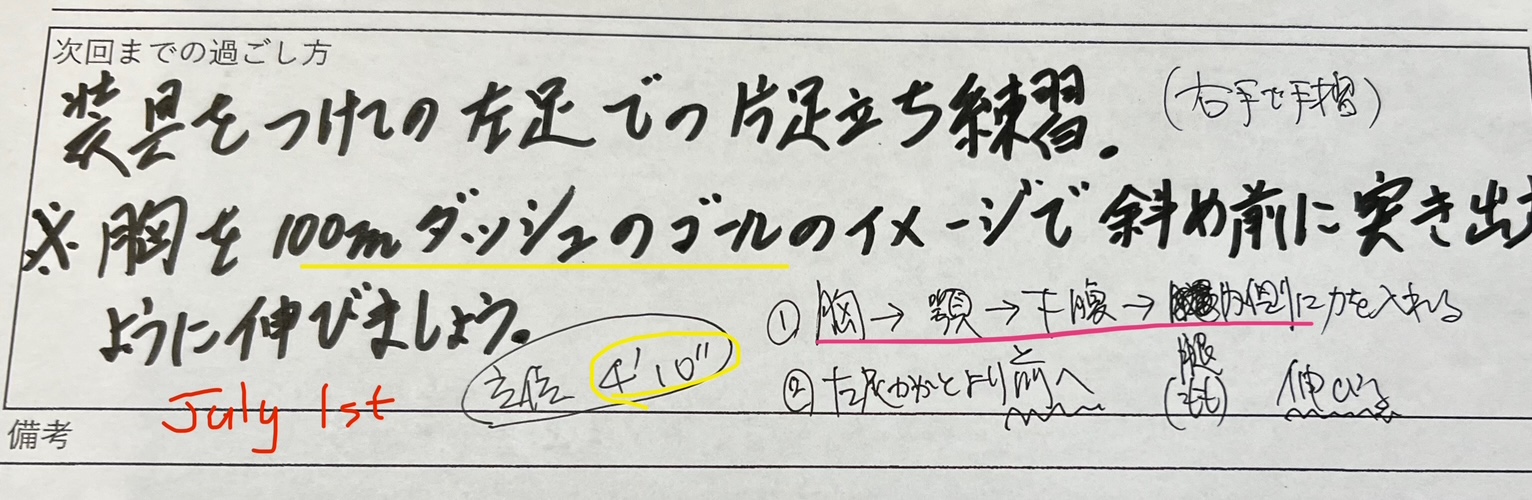 次回までの過ごし方
装具をつけての左足での片足立ち練習。(右手で手摺)
※胸を100mダッシュのゴールのイメージで斜め前に突き出す
ように伸びましょう。
①胸→顎→下腹→内側に力を入れる
腿
(もも)
②左足かかとより前へ
と
伸びる
立位 4'10"
July 1st
備考